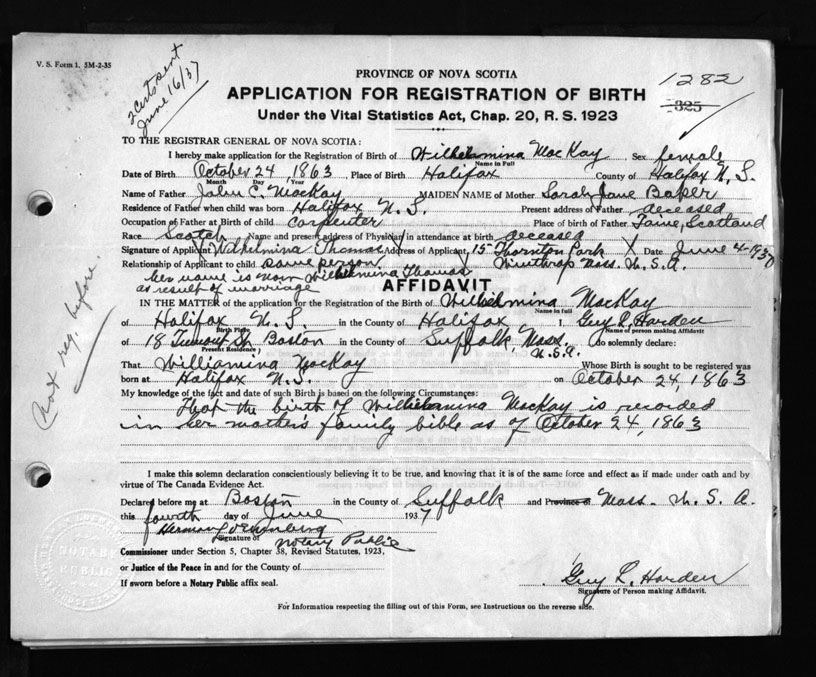 V. S. Form 1. 5M-2-35
2 certs sent
June 16/37
PROVINCE OF NOVA SCOTIA
1282
325
APPLICATION FOR REGISTRATION OF BIRTH
Under the Vital Statistics Act, Chap. 20, R. S. 1923
TO THE REGISTRAR GENERAL OF NOVA SCOTIA:
I hereby make application for the Registration of Birth of Wilhelmina MacKay Sex female
Name in Full
Date of Birth October 24 1863 Place of Birth Halifax County of Halifax N. S.
Month Day Year
Name of Father John C. MacKay MAIDEN NAME of Mother Sarah Jane Baker
Residence of Father when child was born Halifax N. S. Present address of Father deceased
Occupation of Father at Birth of child carpenter Place of birth of Father Scotland
Race Scotch Name and present address of Physician in attendance at birth deceased
Signature of Applicant X Wilhelmina Thomas Address of Applicant, 15 Thornton Park X Date June 4-1937
Relationship of Applicant to child same person Winthrop Mass. U. S. A.
her name is now Wilhelmina Thomas
as result of marriage
AFFIDAVIT
IN THE MATTER of the application for the Registration of the Birth of Wilhelmina MacKay
Name in full
of Halifax N. S. in the County of Halifax I, Guy L. Harden
Birth Place Name of person making Affidavit
of 18 Tremont St. Boston in the County of Suffolk, Mass. do solemnly declare:
Present Residence U. S. A.
That Williamina MacKay Whose Birth is sought to be registered was
born at Halifax N. S. on October 24, 1863
My knowledge of the fact and date of such Birth is based on the following Circumstances:
That the birth of Wilhelmina MacKay is recorded
in her mother's family bible as of October 24, 1863
Not reg. before.
I make this solemn declaration conscientiously believing it to be true, and knowing that it is of the same force and effect as if made under oath and by
virtue of The Canada Evidence Act.
Declared before me at Boston in the County of Suffolk and Province of Mass. U. S. A.
this fourth day of June 1937
Herman
Signature of Notary Public
Commissioner under Section 5, Chapter 38, Revised Statutes, 1923,
or Justice of the Peace in and for the County of
If sworn before a Notary Public affix seal.
NOTARY
PUBLIC
Guy L. Harden
Signature of Person making Affidavit.
For Information respecting the filling out of this Form, see Instructions on the reverse side.